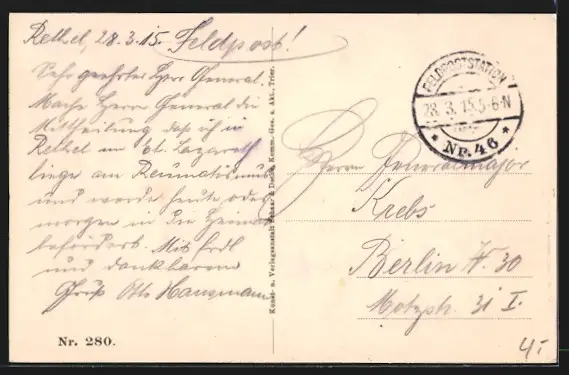 Rethel, 28.3.15. Feldpost!
Sehr geehrter Herr General.
Mache Herrn General die
Mittheilung das ich in
Rethel im Et. Lazareth
liege am Reumatismus
und werde heute oder
morgen in die Heimat
befördert. Mit
und dankbarem
Gruß Otto Hausmann
Nr. 280.
Kunst- u. Verlagsanstalt Schaar & Dathe, Komm. Ges. a. Akt., Trier.
FELDPOSTSTATION
28. 3. 15. 5-6 N
* Nr. 46 *
Herrn Generalmajor
Krebs
Berlin W. 30
Motzstr. 31 I.
4,-